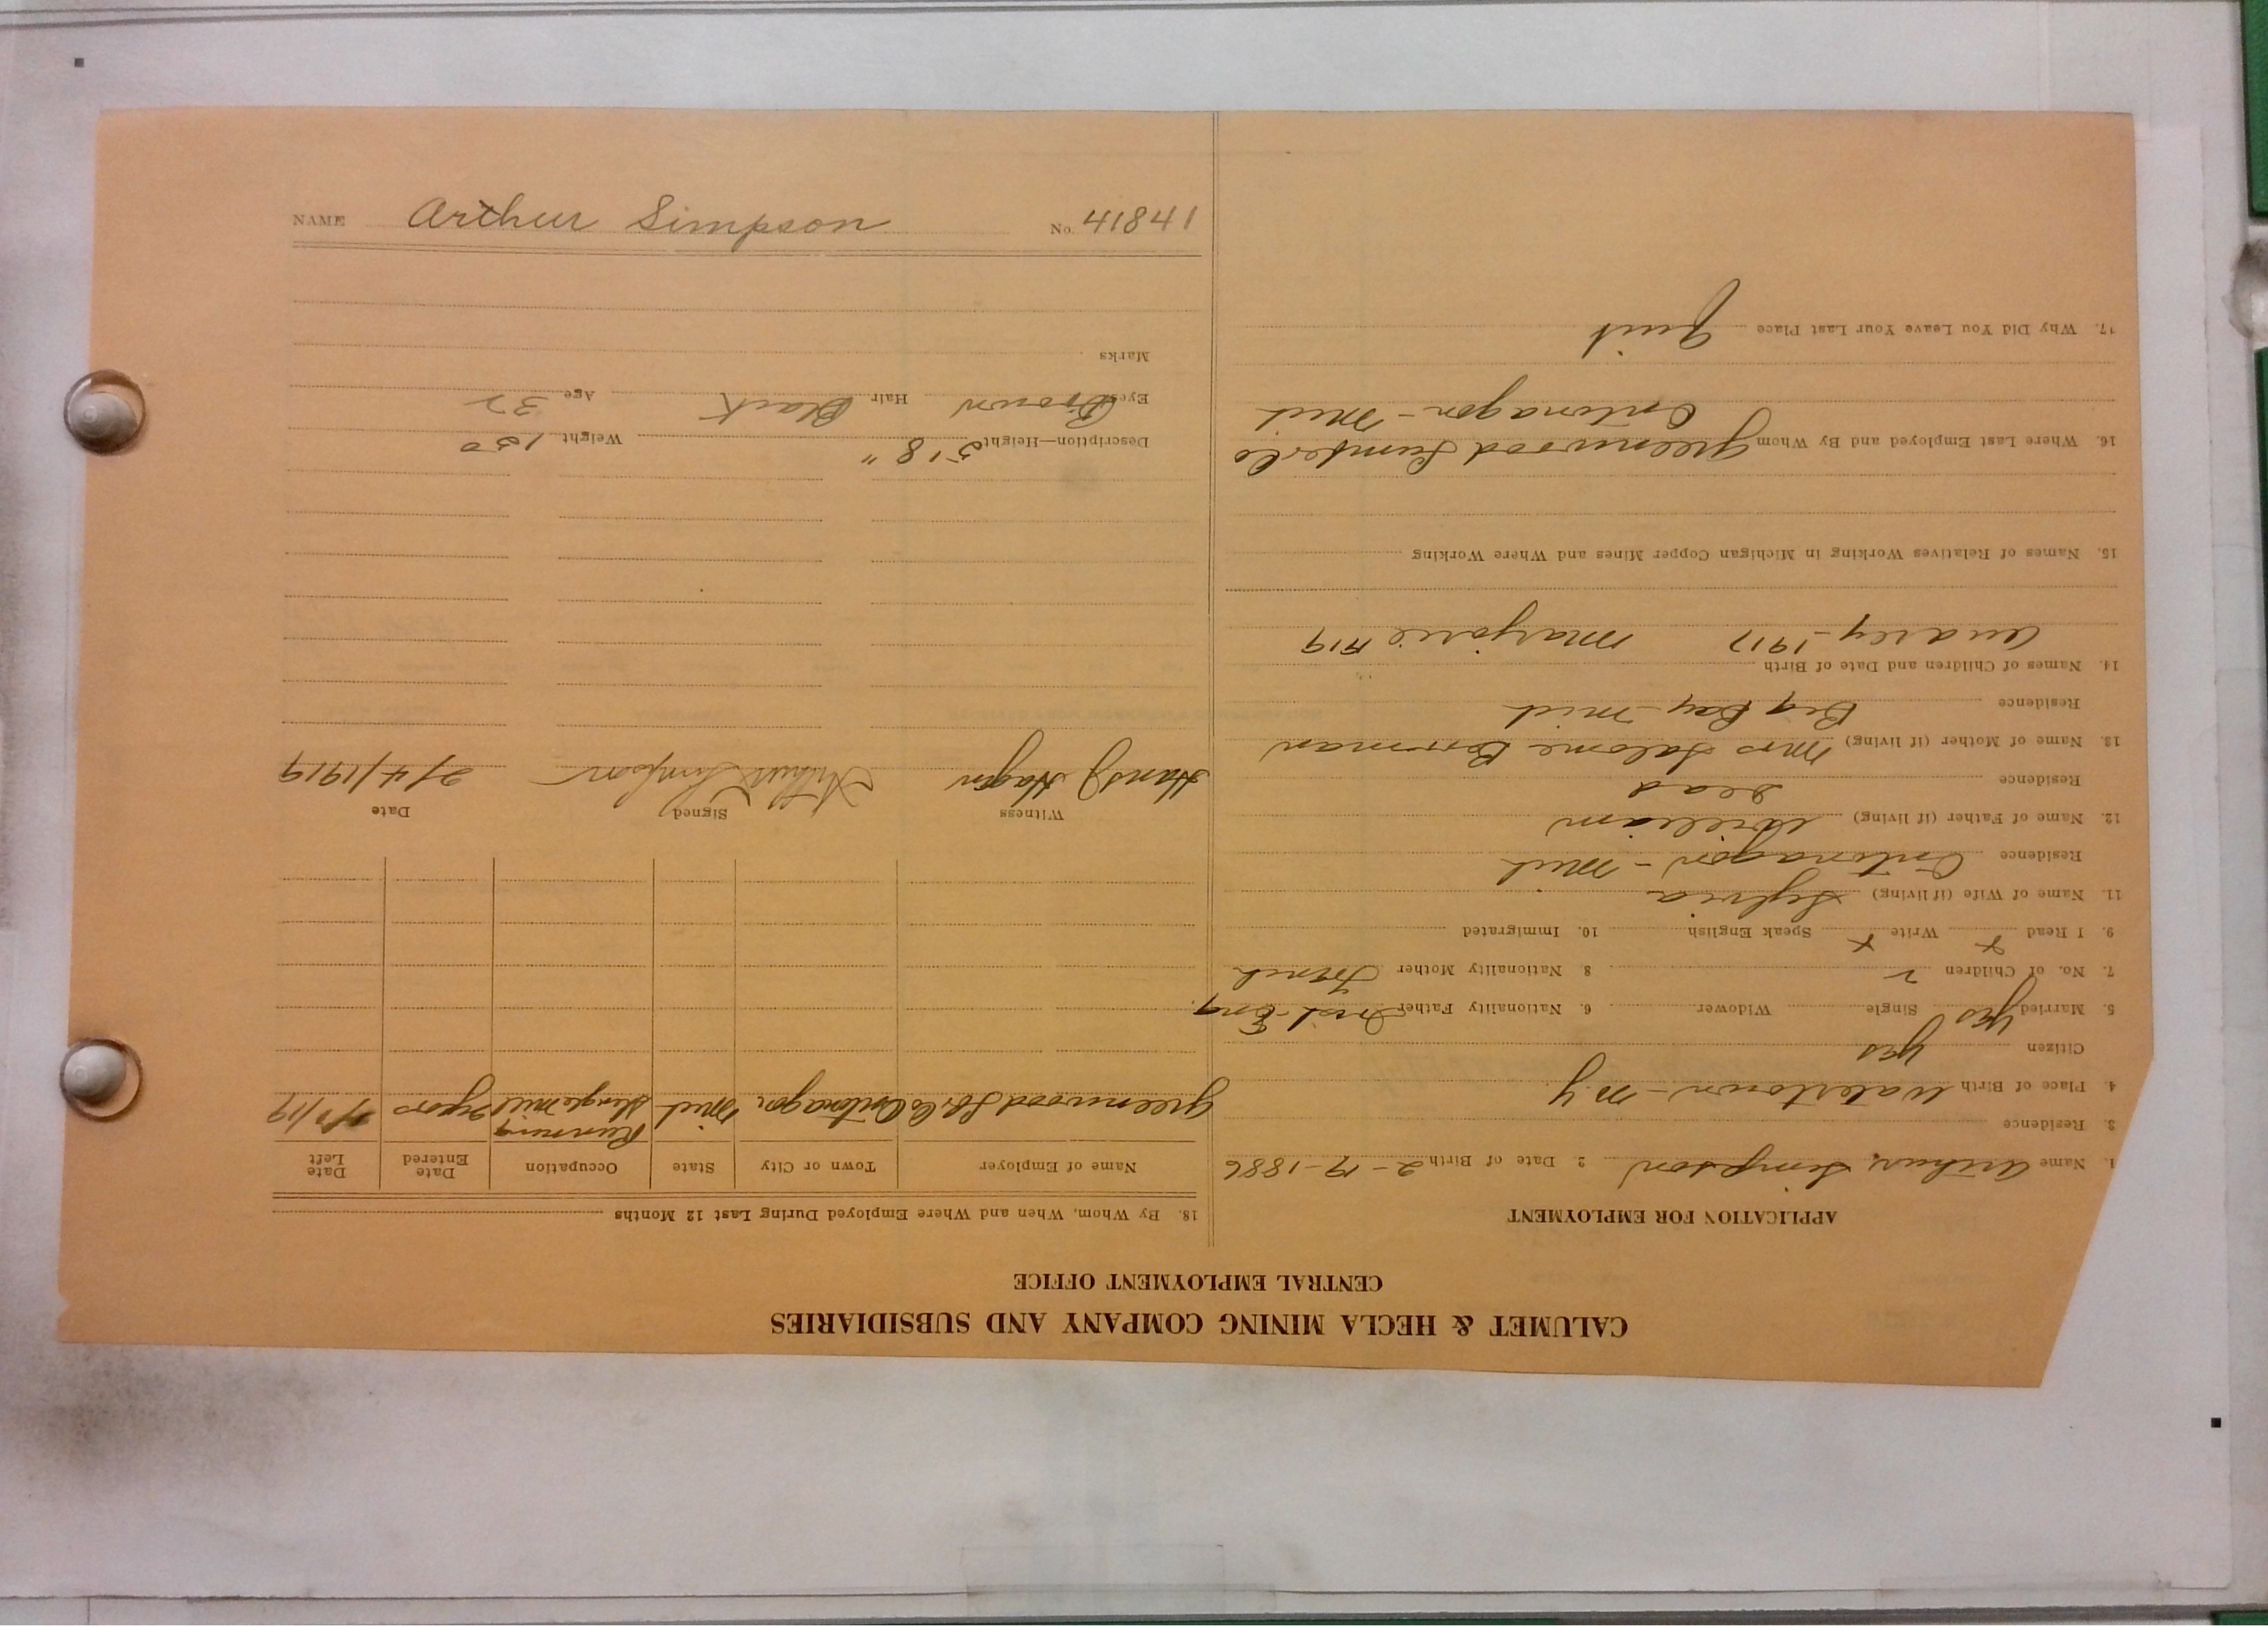 NAME Arthur Simpson No. 41841
CALUMET & HECLA MINING COMPANY AND SUBSIDIARIES
CENTRAL EMPLOYMENT OFFICE
APPLICATION FOR EMPLOYMENT
1. Name Arthur Simpson 2 Date of Birth 2-19-1886
3. Residence
4. Place of Birth Watertown - N.Y.
Citizen Yes
5. Married Yes Single Widower 6. Nationality Father Irish-Eng.
7. No. of Children 2 8 Nationality Mother French
9. I Read x Write x Speak English 10. Immigrated
11. Name of Wife (if living) Sylvia
Residence Ontonagon - Mich
12. Name of Father (if living) William
Residence Dead
13. Name of Mother (if living) Mrs Salome Bowman
Residence Big Bay - Mich
14. Names of Children and Date of Birth
1917 Marjorie 1919
15. Names of Relatives Working in Michigan Copper Mines and Where Working
16. Where Last Employed and By Whom Greenwood Lumber Co
Ontonagon - Mich
17. Why Did You Leave Your Last Place Quit
18. By Whom, When and Where Employed During Last 12 Months
Name of Employer Town or City State Occupation Date Entered Date Left
Greenwood Lbr. Co Ontonagon Mich Running Mill 2 years
Witness Signed Date
Hans J Hagen Arthur Simpson 2/4/1919
Description—Height 5'8" Weight 150
Eyes Brown Hair Black Age 32
Marks